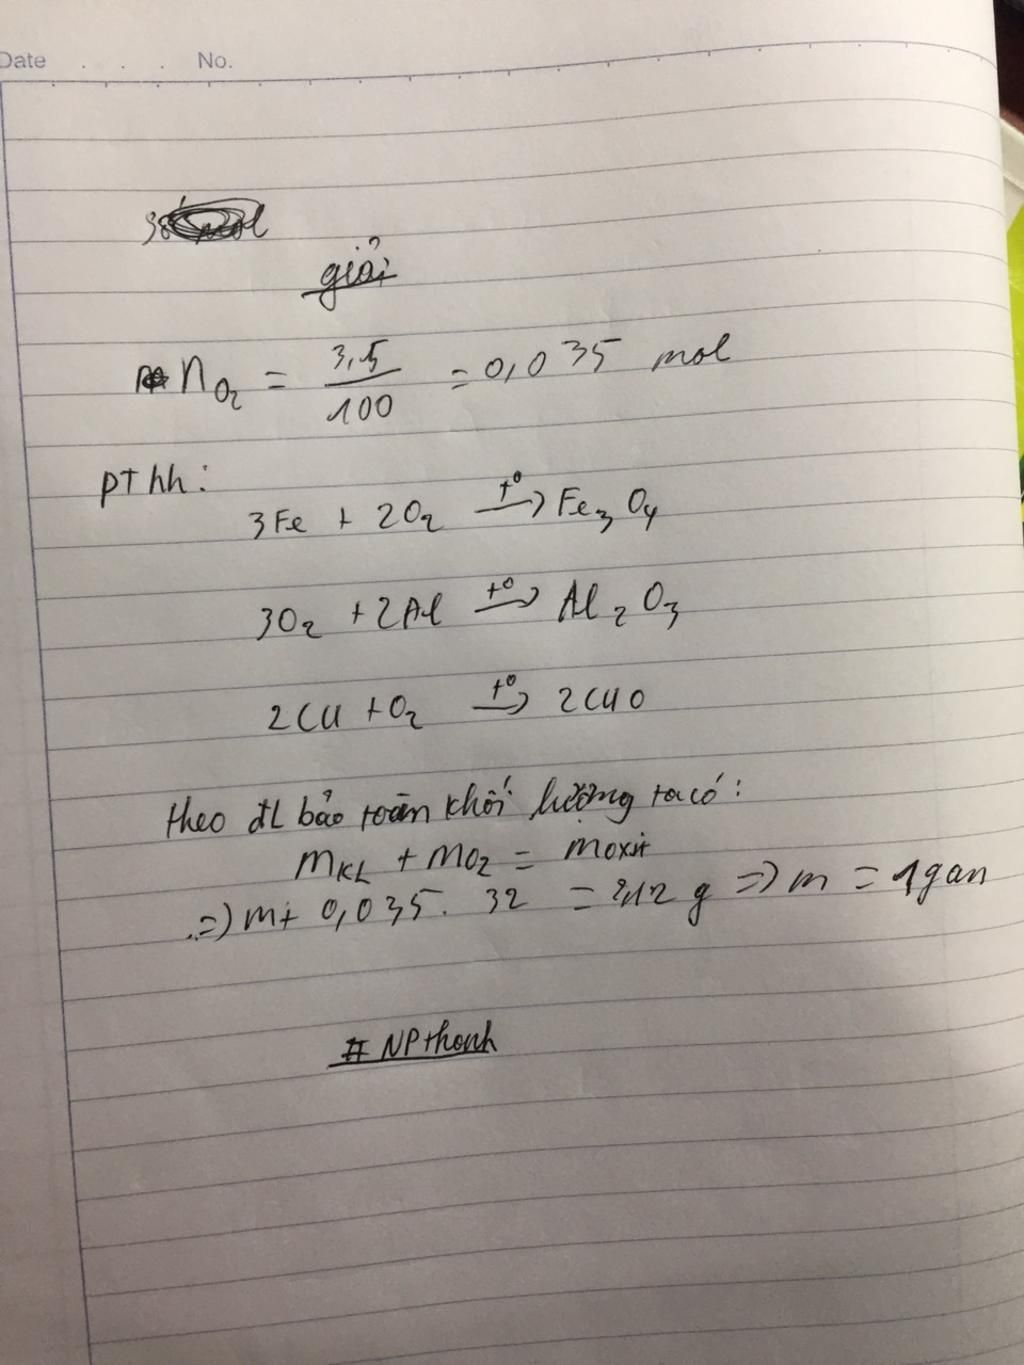 Date . . . No.
giải
nO2 = 3,5/100 = 0,035 mol
PThh:
3Fe + 2O2 t°→ Fe3O4
3O2 + 2Al t°→ Al2O3
2Cu + O2 t°→ 2CuO
theo đL bảo toàn khối lượng ta có:
mKL + mO2 = moxit
=> m + 0,035. 32 = 2,12 g => m = 1gam
# NPthanh